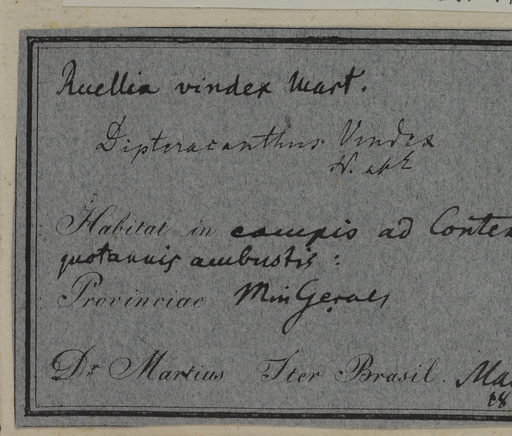 Ruellia vindex Mart.
Dipteracanthus Vindex
N. ab E
Habitat in campis ad Conten
quotannis ambustis:
Provinciae Min Geraes
Dr Martius Iter Brasil. Ma
18